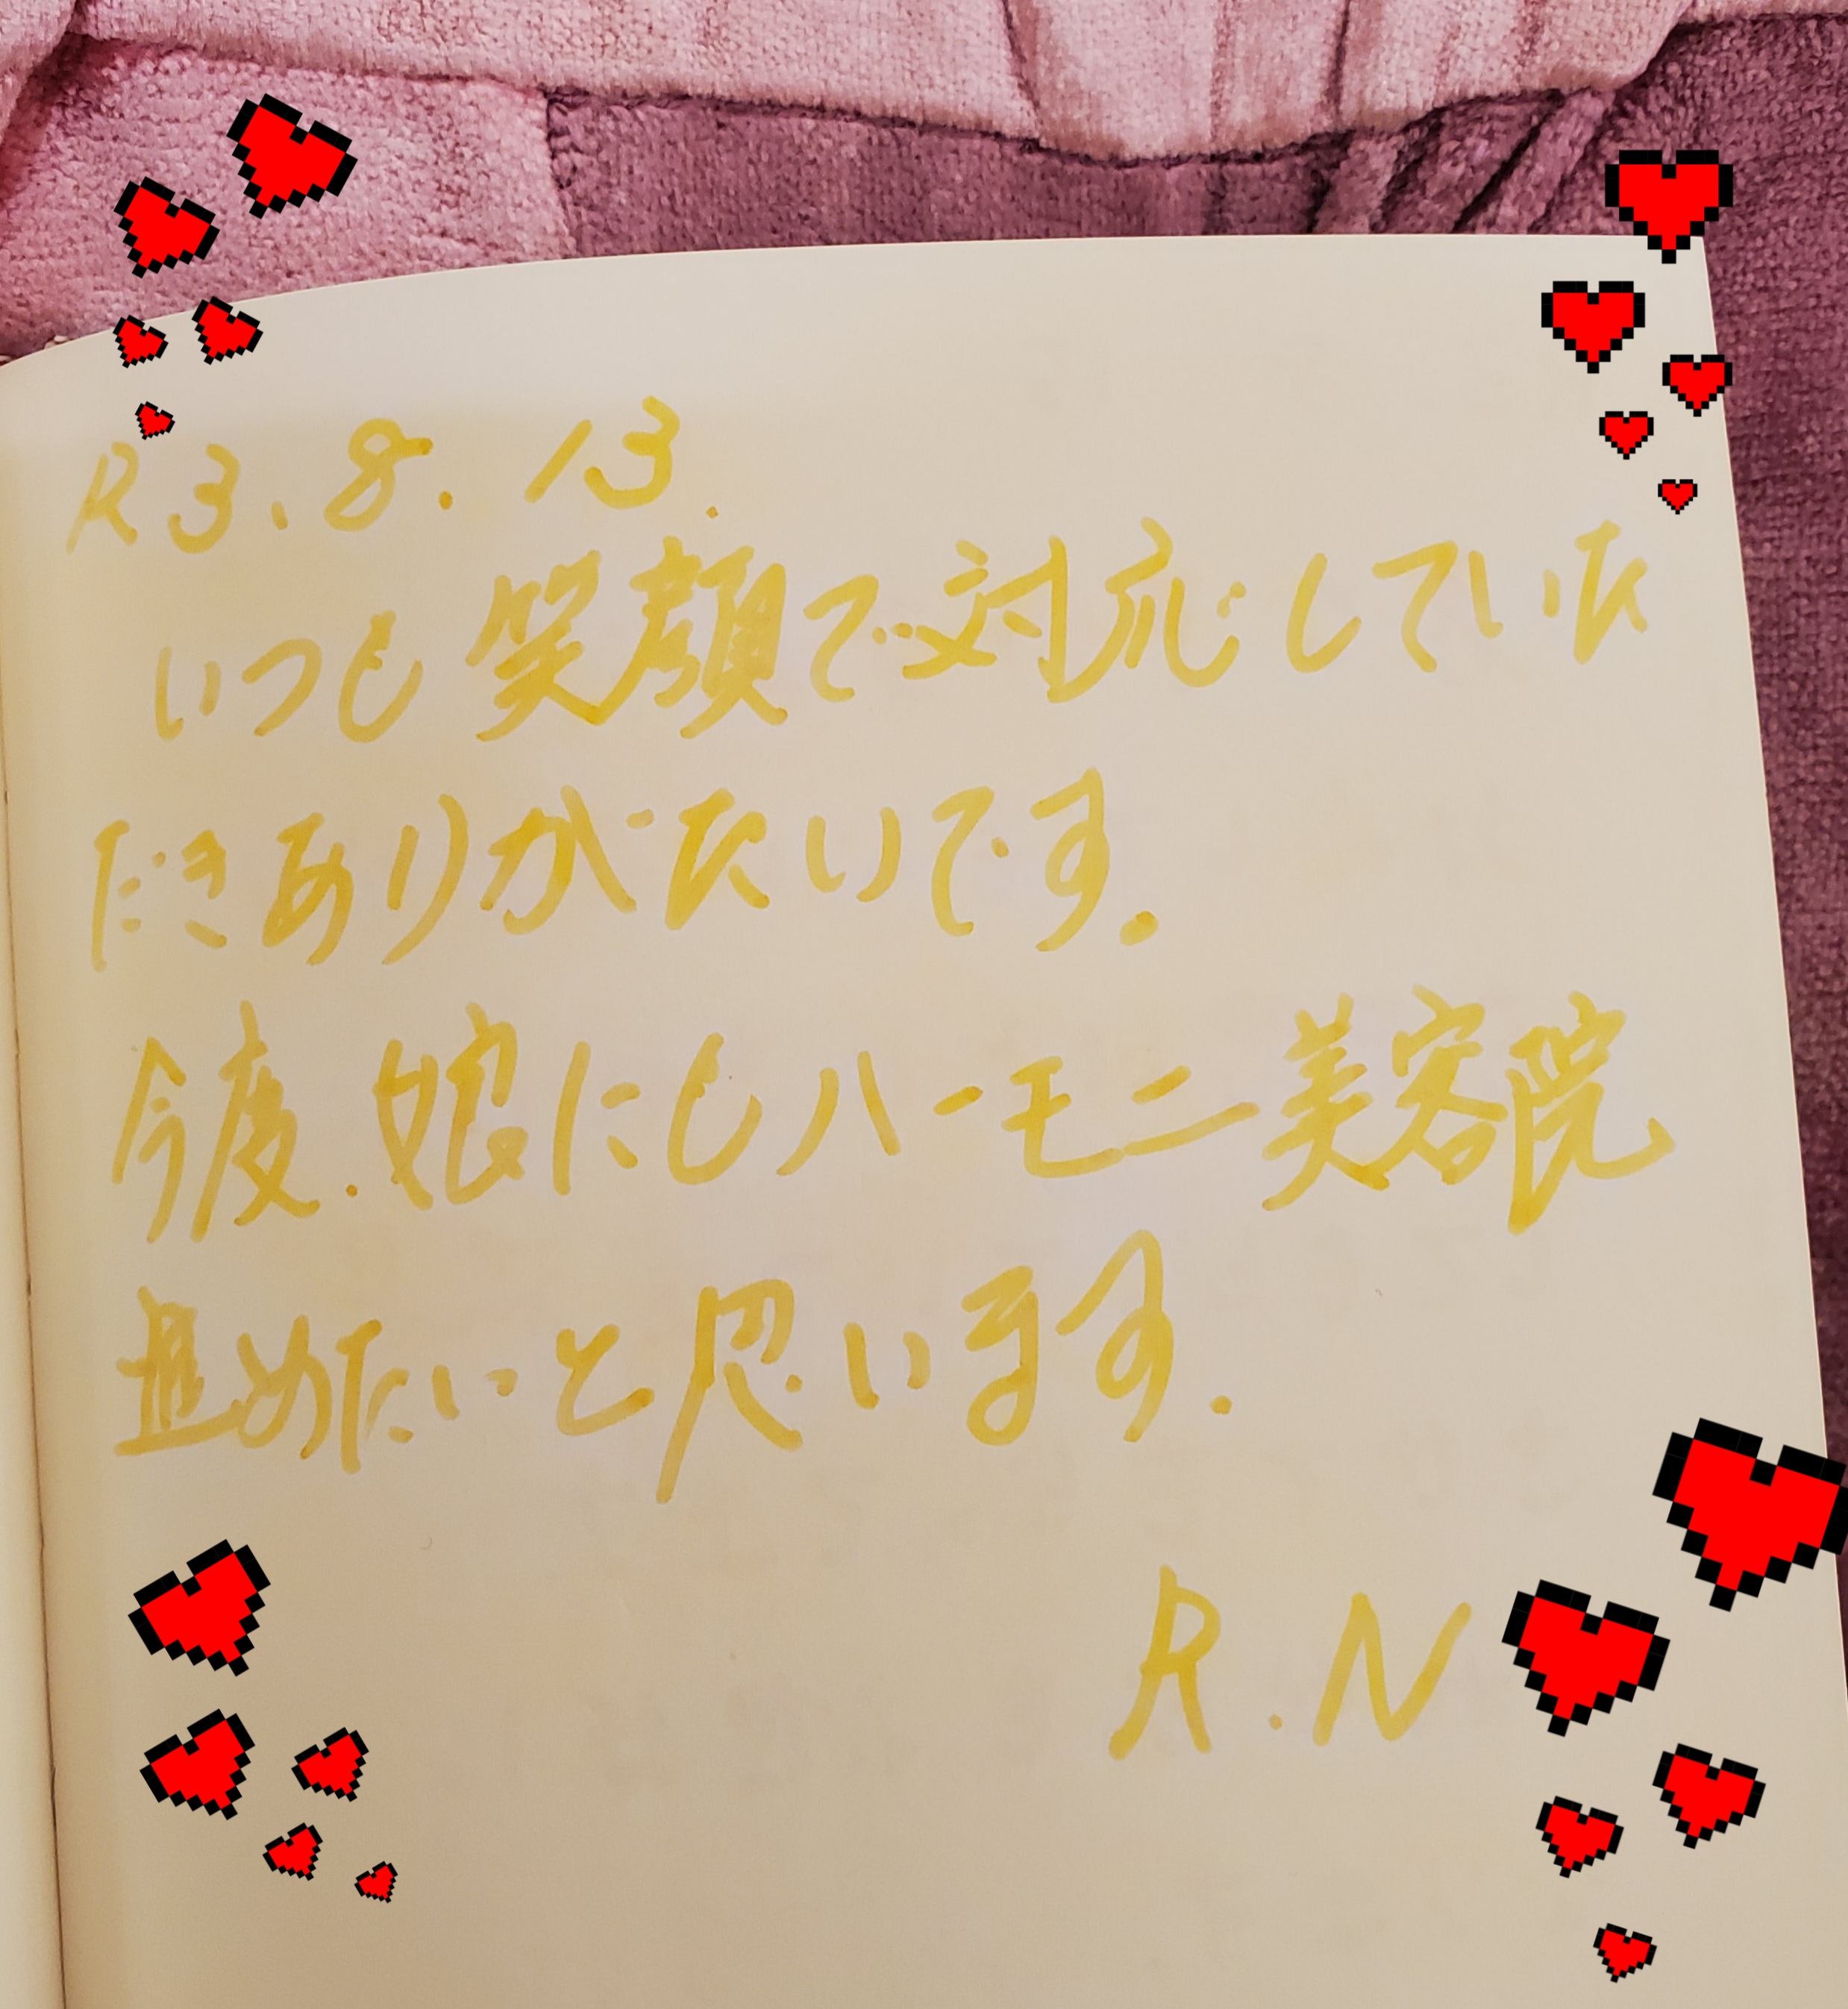 R3.8.13.
いつも笑顔で対応していた
だきありがたいです.
今度.娘にもハーモニ美容院
進めたいと思います.
R.N